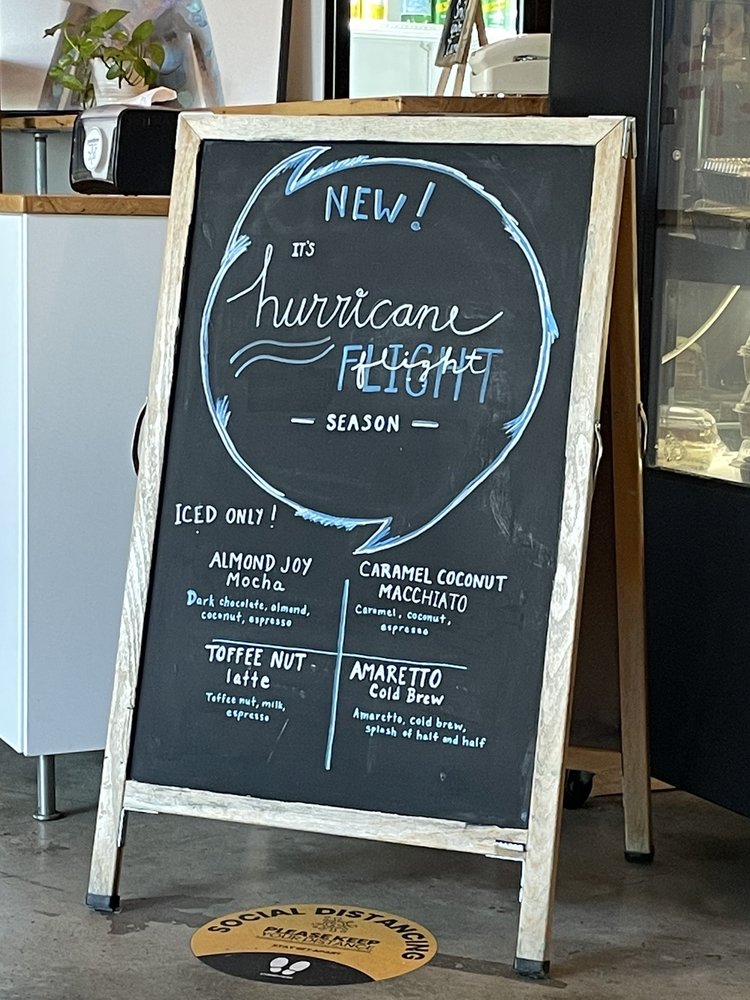 NEW!
IT'S
hurricane
FLIGHT
flight
SEASON
ICED ONLY!
ALMOND JOY
Mocha
Dark chocolate, almond,
coconut, espresso
CARAMEL COCONUT
MACCHIATO
Caramel, coconut,
espresso
TOFFEE NUT
latte
Toffee nut, milk,
espresso
AMARETTO
Cold Brew
Amaretto, cold brew,
splash of half and half
SOCIAL DISTANCING
PLEASE KEEP
YOUR DISTANCE